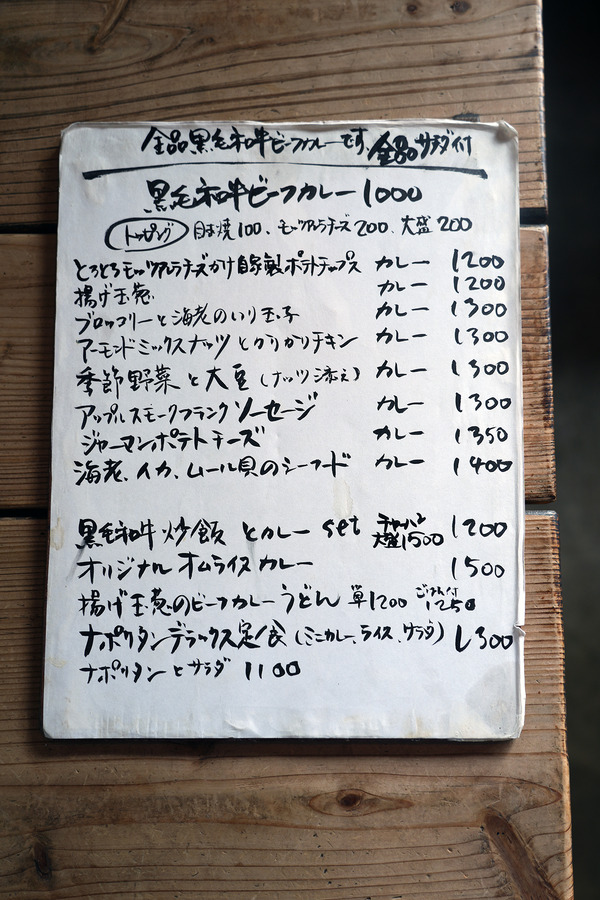 全品黒毛和牛ビーフカレーです、全品サラダ付
黒毛和牛ビーフカレー 1000
トッピング 目玉焼100、モッツアレラチーズ200、大盛200
とろとろモッツアレラチーズかけ自家製ポテトチップス カレー 1200
揚げ玉葱 カレー 1200
ブロッコリーと海老のいり玉子 カレー 1300
アーモンドミックスナッツとカリカリチキン カレー 1300
季節野菜と大豆(ナッツ添え) カレー 1300
アップルスモークフランクソーセージ カレー 1300
ジャーマンポテトチーズ カレー 1350
海老、イカ、ムール貝のシーフード カレー 1400
黒毛和牛炒飯とカレー set チャーハン大盛1500 1200
オリジナルオムライスカレー 1500
揚げ玉葱のビーフカレーうどん 単1200 ごはん付1250
ナポリタンデラックス定食(ミニカレー、ライス、サラダ) 1300
ナポリタンとサラダ 1100